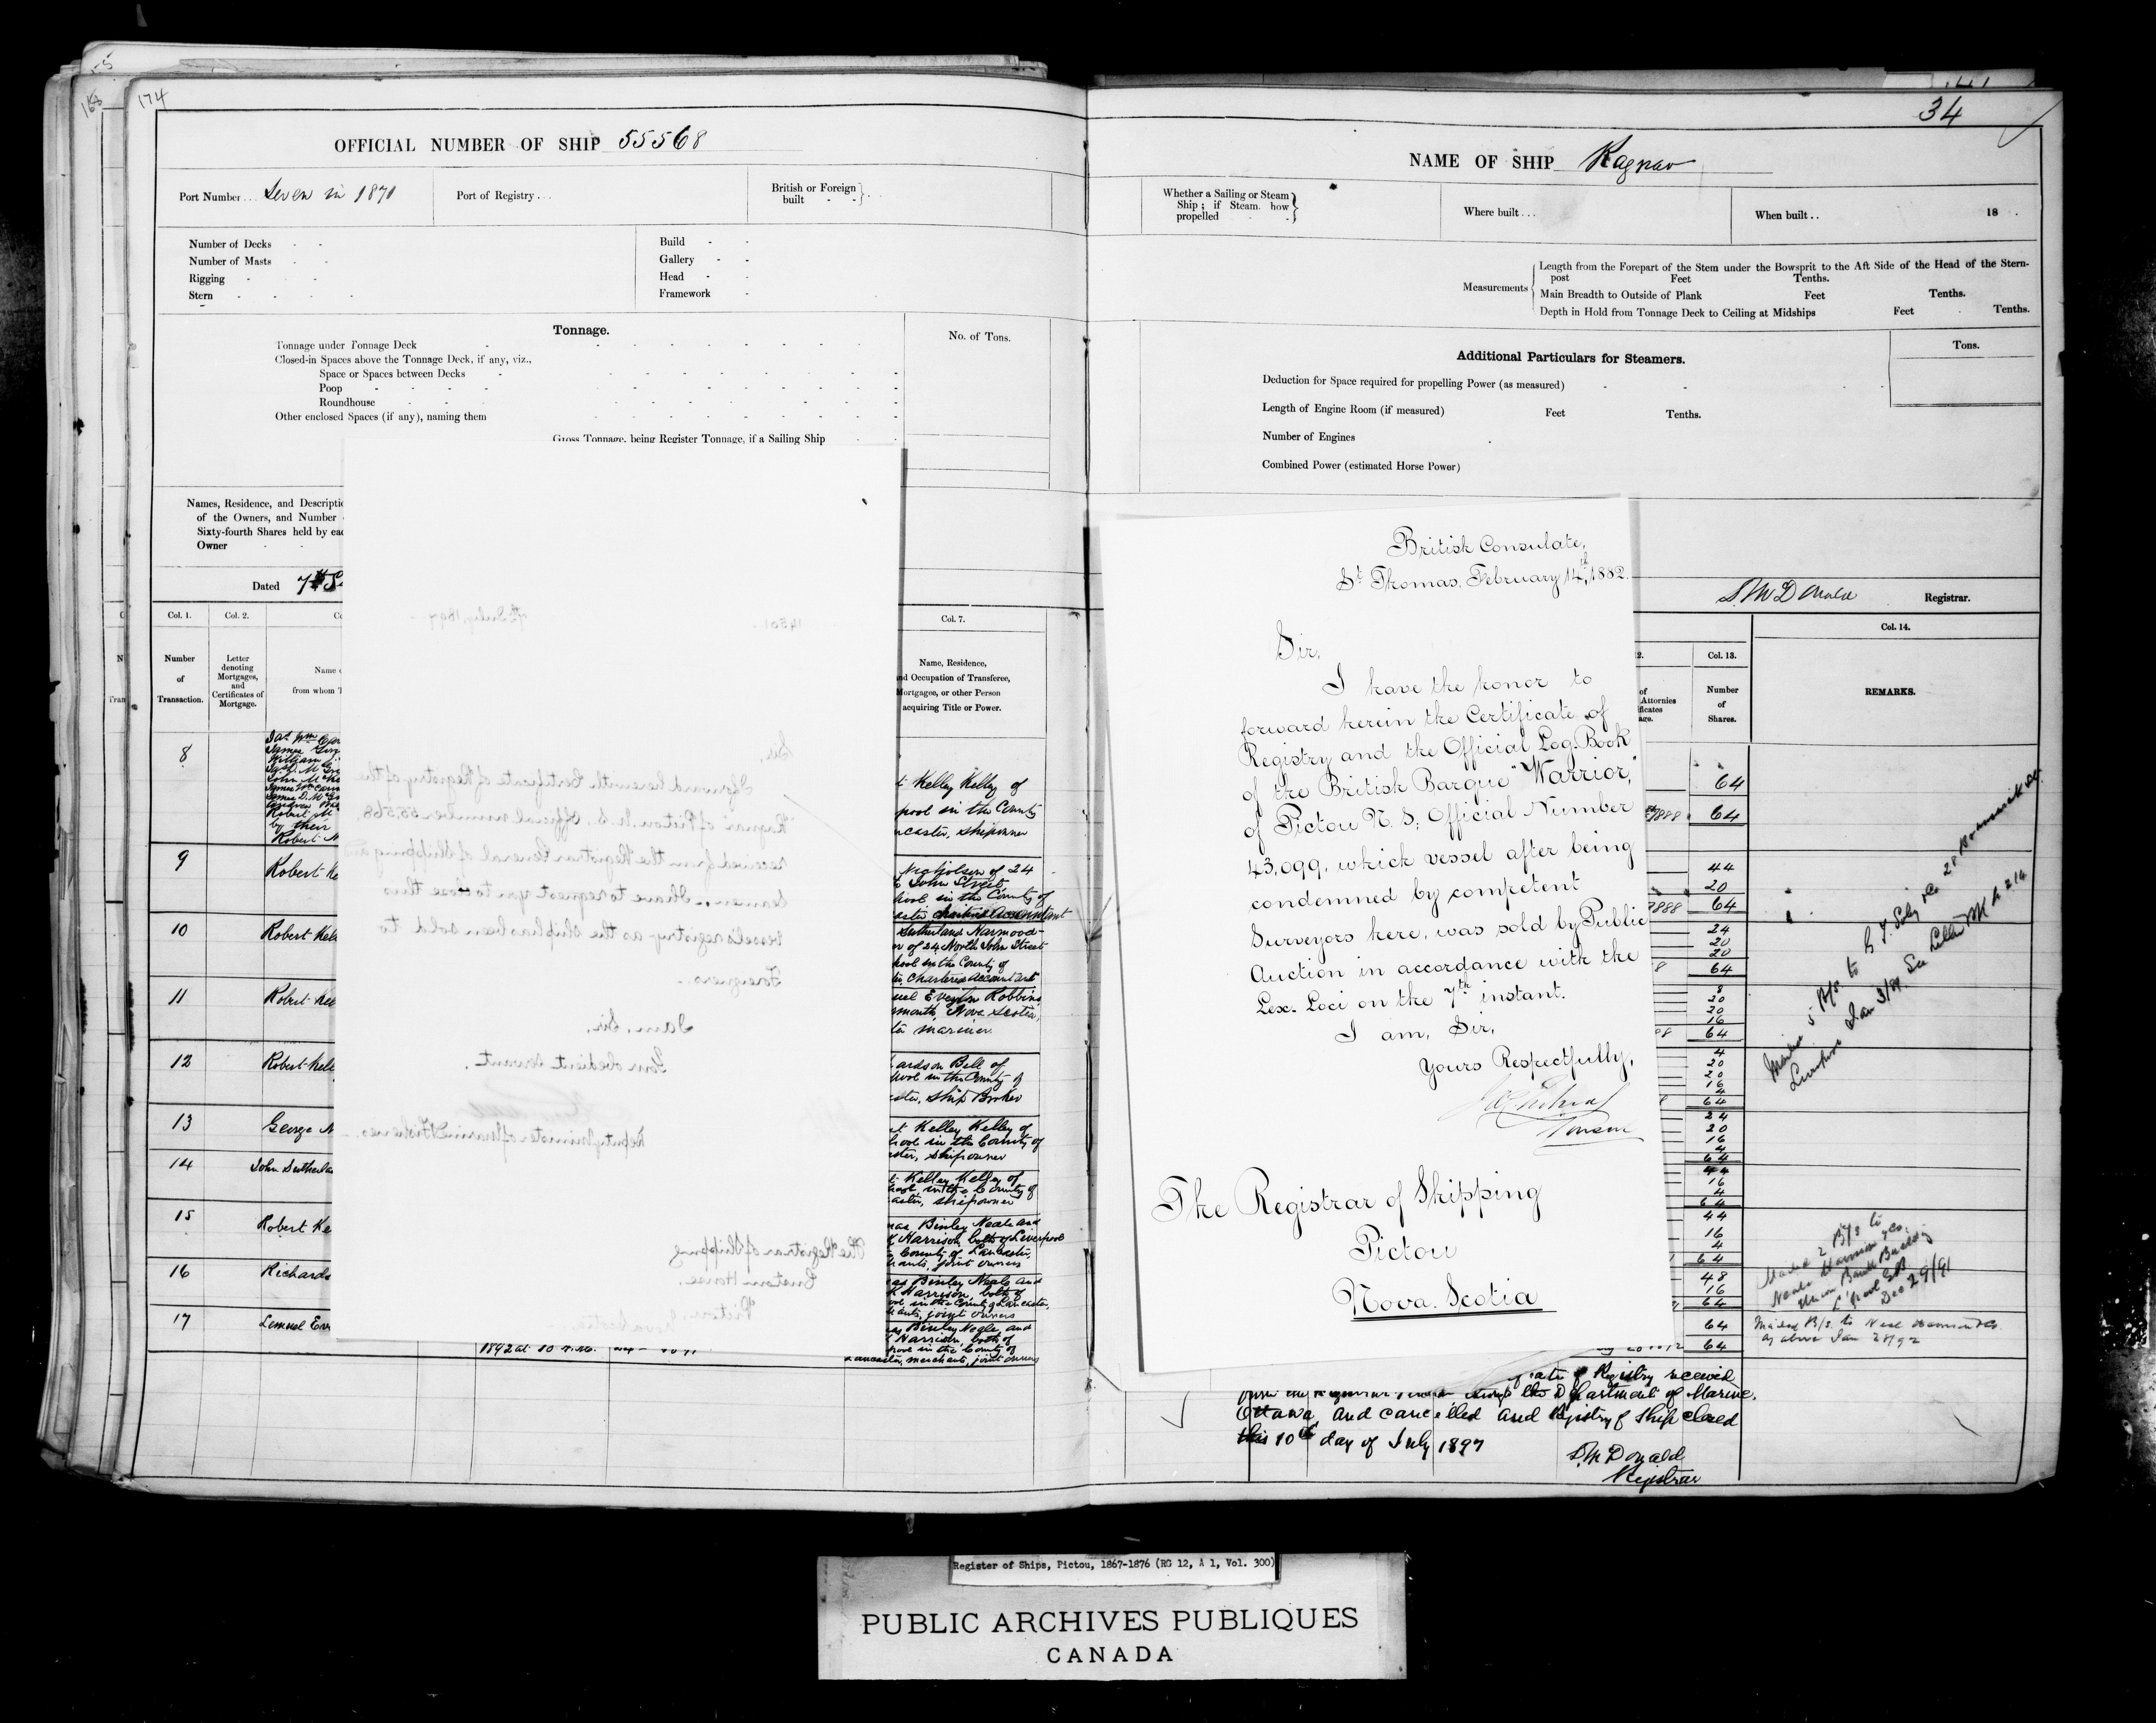 174
OFFICIAL NUMBER OF SHIP 55568
Port Number... Seven in 1870
Port of Registry...
British or Foreign built
Number of Decks
Number of Masts
Rigging
Stern
Build
Gallery
Head
Framework
Tonnage.
No. of Tons.
Tonnage under Tonnage Deck
Closed-in Spaces above the Tonnage Deck, if any, viz.,
Space or Spaces between Decks
Poop
Roundhouse
Other enclosed Spaces (if any), naming them
Gross Tonnage, being Register Tonnage, if a Sailing Ship
Names, Residence, and Descripti
of the Owners, and Number
Sixty-fourth Shares held by eac
Owner
Dated 7th S
Col. 1.
Col. 2.
Col. 7.
Number of Transaction.
Letter denoting Mortgages, and Certificates of Mortgage.
Name
from whom T
Name, Residence,
nd Occupation of Transferee,
Mortgagee, or other Person
acquiring Title or Power.
8
by their
Robert M
t Kelley Kelley of
pool in the County
ncaster, Shipowner
9
Robert Ke
Nicholson of 24
John Street,
pool in the County of
aster Chartered Accountant
10
Robert Kell
Sutherland Harmood-
r of 24 North John Street
pool in the County of
Chartered Accountant
11
Robert Kel
uel Evelyn Robbins
mouth, Nova Scotia,
mariner.
12
Robert Kell
ardson Bell of
pool in the County of
ster, Ship Broker
13
George N
t Kelley Kelley of
pool in the County of
ster, Shipowner
14
John Sutherla
t Kelley Kelley of
pool, in the County of
aster, shipowner
15
Robert Ke
mas Binley Neale and
Harrison, both of Liverpool
County of Lancaster,
hants, joint owners
16
Richards
as Binley Neale and
Harrison, both of
pool in the County of Lancaster,
hants, joint owners
17
Lemuel Eve
1892 at 10 A.M.
as Binley Neale, and
Harrison, both of
pool in the County of
Lancaster, merchants, joint owners
7th July, 1897
14501
Sir,
I forward herewith Certificate of Registry of the
"Ragnar" of Pictou N.S. Official number 55568
received from the Registrar General of Shipping and
Seamen. I have to request you to close this
vessel's registry as the ship has been sold to
Foreigners.
I am, Sir,
Your obedient servant.
Deputy Minister of Marine & Fisheries.
The Registrar of Shipping
Custom House.
Pictou, Nova Scotia
34
NAME OF SHIP Ragnar
Whether a Sailing or Steam Ship; if Steam, how propelled
Where built...
When built.. 18
Measurements
Length from the Forepart of the Stem under the Bowsprit to the Aft Side of the Head of the Stern-
post Feet Tenths.
Main Breadth to Outside of Plank Feet Tenths.
Depth in Hold from Tonnage Deck to Ceiling at Midships Feet Tenths.
Additional Particulars for Steamers.
Tons.
Deduction for Space required for propelling Power (as measured)
Length of Engine Room (if measured) Feet Tenths.
Number of Engines
Combined Power (estimated Horse Power)
D. McDonald Registrar.
Col. 13.
Col. 14.
Number of Shares.
REMARKS.
British Consulate,
St. Thomas, February 14th, 1882.
Sir,
I have the honor to
forward herein the Certificate of
Registry and the Official Log-Book
of the British Barque "Warrior,"
of Pictou N.S; Official Number
43,099, which vessel after being
condemned by competent
Surveyors here, was sold by Public
Auction in accordance with the
Lex. Loci on the 7th instant.
I am, Sir,
Yours Respectfully,
The Registrar of Shipping
Pictou
Nova. Scotia
64
64
44
20
64
24
20
20
64
8
20
20
16
64
4
20
20
16
4
64
24
20
16
4
64
44
16
4
64
44
16
4
64
48
16
64
64
64
Jan 3/89 See Letter Bk
Mailed 2 B/s to
Neale Harrison & Co.
Union Bank Building
L'pool GB
Dec 29/91
Mailed B/s. to Neal Harrison & Co.
as above Jan 28/92
Registry received
through the Department of Marine,
Ottawa, and cancelled and Registry of Ship closed
this 10th day of July 1897
D. McDonald
Registrar
Register of Ships, Pictou, 1867-1876 (RG 12, A 1, Vol. 300)
PUBLIC ARCHIVES PUBLIQUES
CANADA